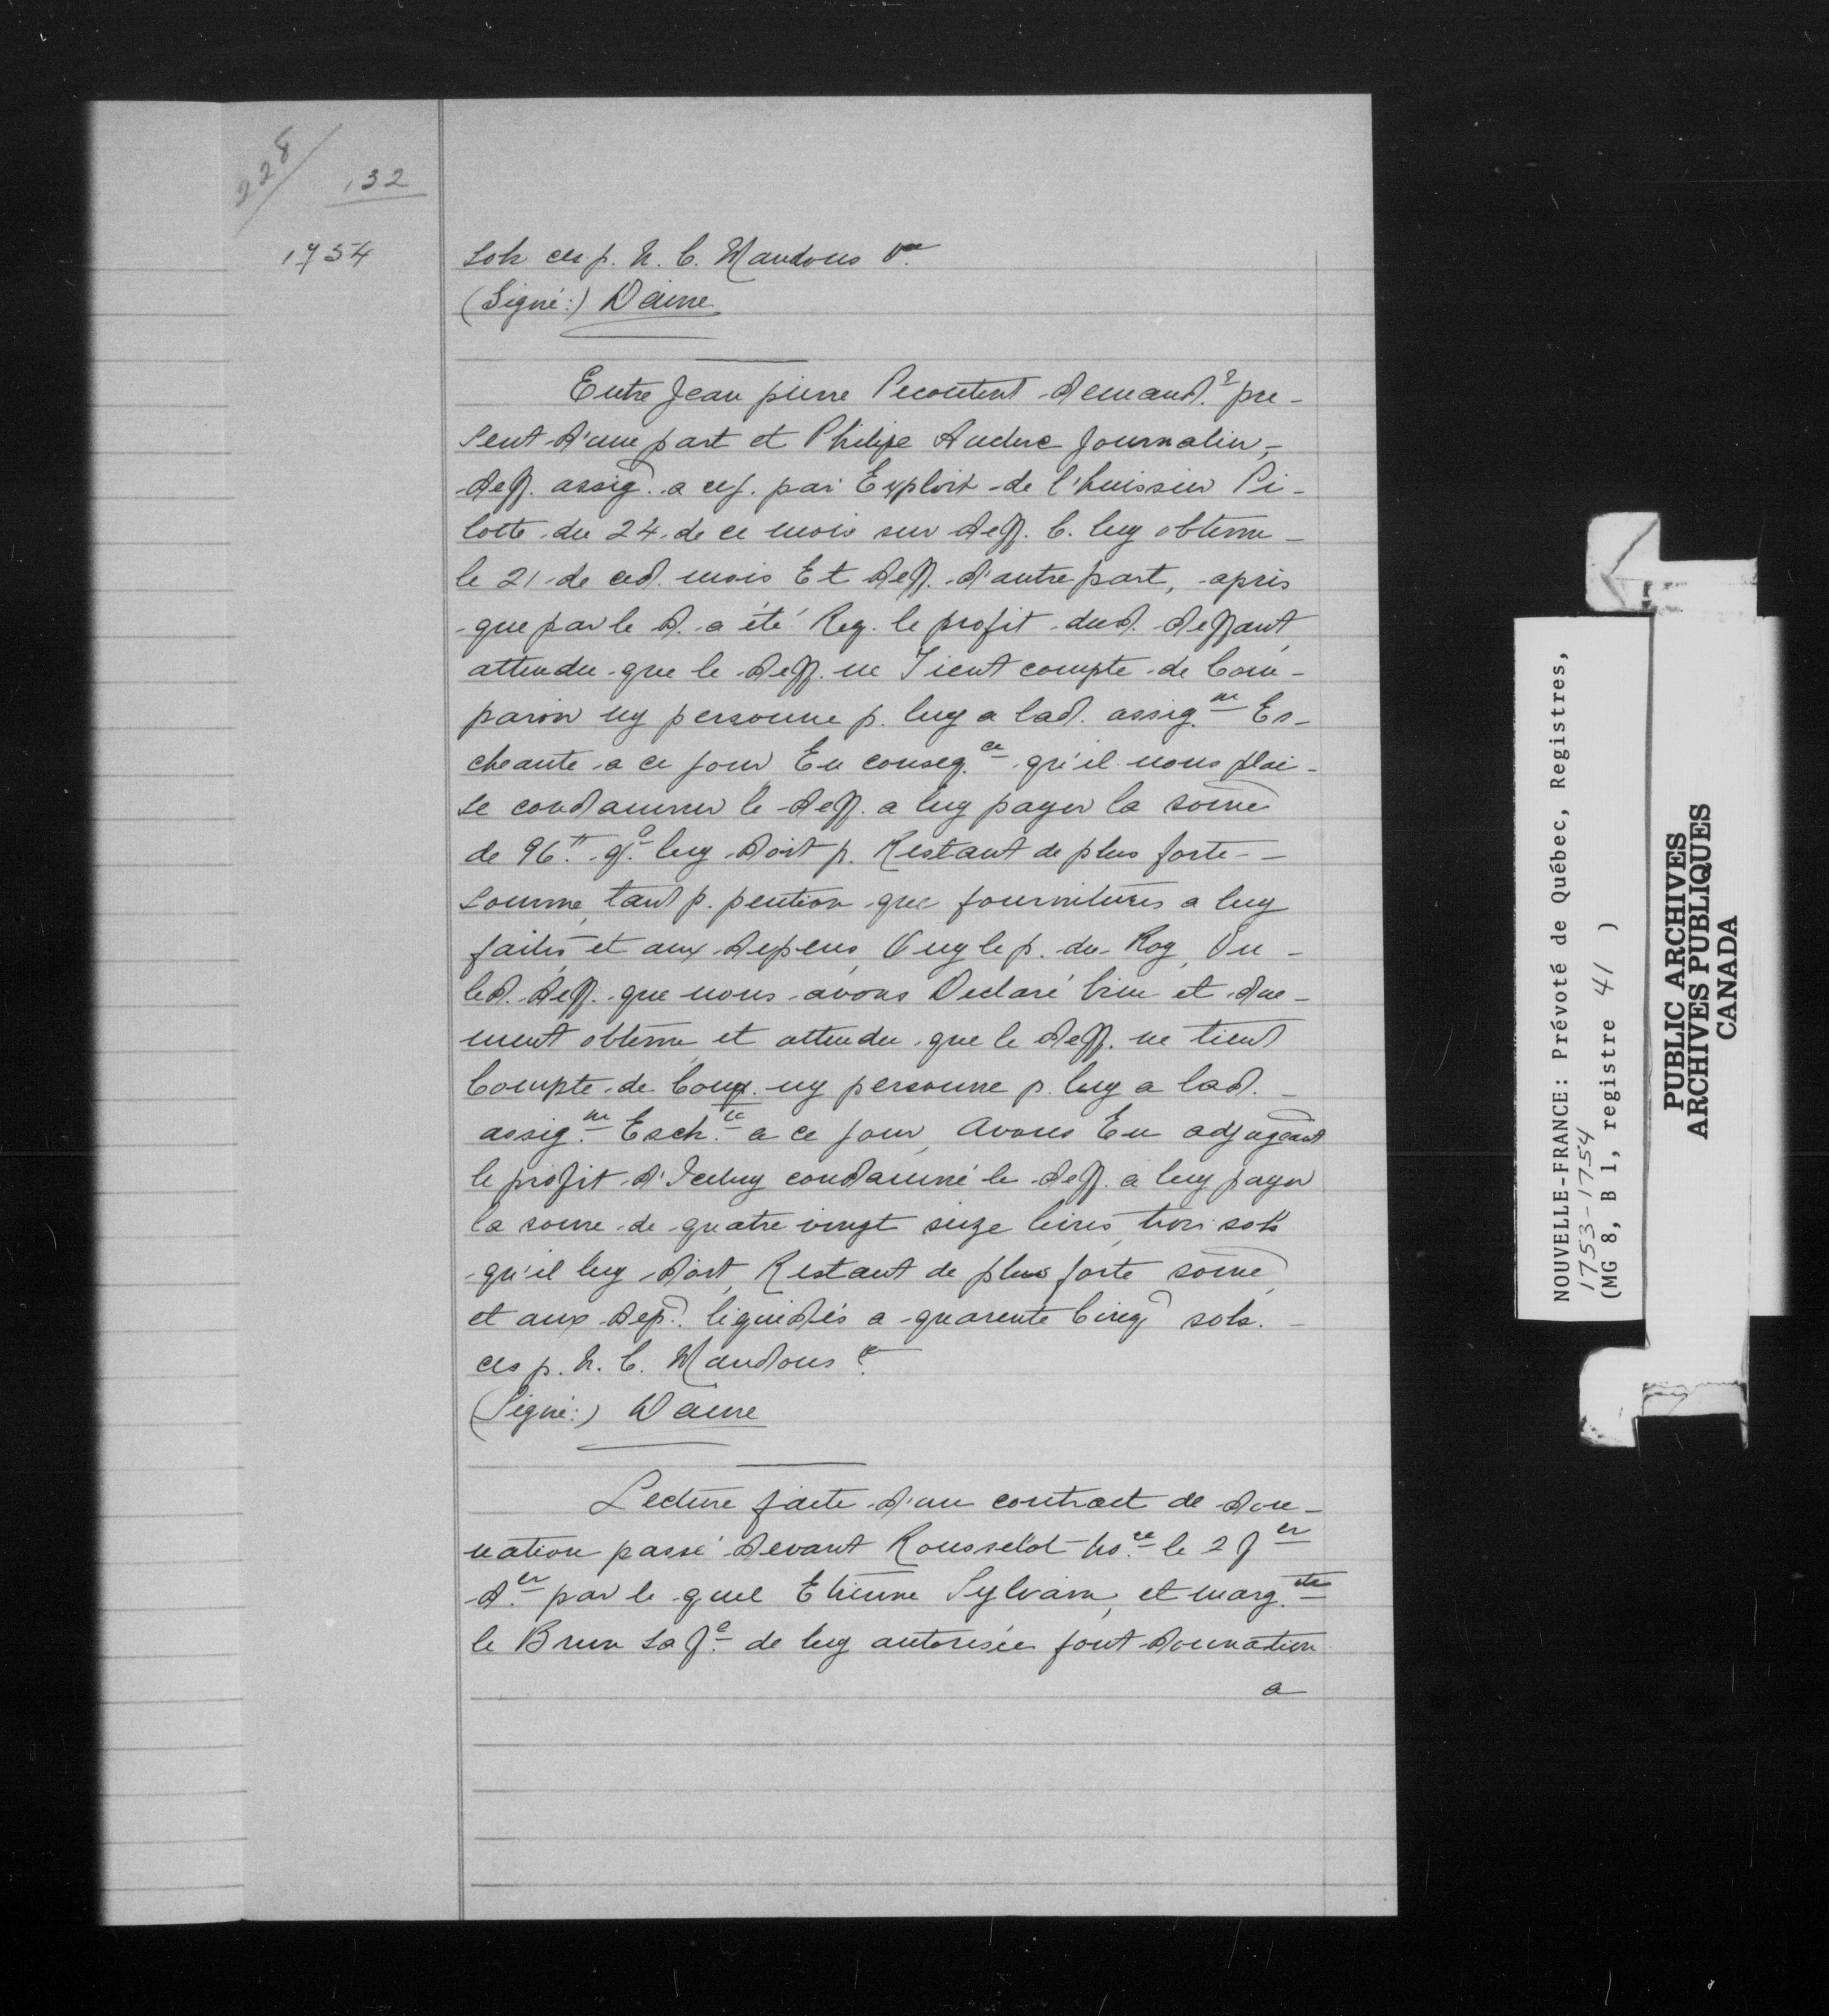 228
132
1754
Sols ces p. N. C. Mandons &.ce
(Signé:) Daine
Entre Jean pierre Pecoutent demand.r pre-
sent d'une part et Philipe Auduc Journalier,-
deff. assig. a cej. par Exploit de l'huissier Pi-
lotte du 24. de ce mois sur deff. C. luy obtenu-
le 21 de ced. mois Et deff. d'autre part, apris
que par le d. a été Req. le profit dud. deffaut,
attendu que le deff. ne Tient compte de Com-
paroir ny personne p. luy a lad. assig.on Es-
cheante a ce jour, En conseq.ce qu'il nous plai-
se condamner le deff. a luy payer la somē
de 96.tt q.l luy doit p. Restant de plus forte--
somme, tant p. pention que fournitures a luy
faites, et aux depens, Ouy le p. du Roy, Vu-
led. deff. que nous avons Declaré bien et due-
ment obtenu, et attendu que le deff. ne tient
Compte de Comp. ny personne p. luy a lad.-
assig.on Esch.te a ce jour, avons En adjugeant
le profit d'Iceluy condamné le deff. a luy payer
la somē de quatre vingt seize livres, trois sols
qu'il luy doit, Restant de plus forte somē,
et aux dep. liquidés a quarente Cinq sols.-
ces p. N. C. Mandons &.ce
(Signé:) Daine
Lecture faite d'un contract de don-
nation passé devant Rousselot No.re le 2 J.er
d.er par le quel Etienne Sylvain, et marg.te
le Brun sa f.e de luy autorisée font donnation
a
NOUVELLE-FRANCE: Prévoté de Québec, Registres,
1753-1754
(MG 8, B 1, registre 41 )
PUBLIC ARCHIVES
ARCHIVES PUBLIQUES
CANADA